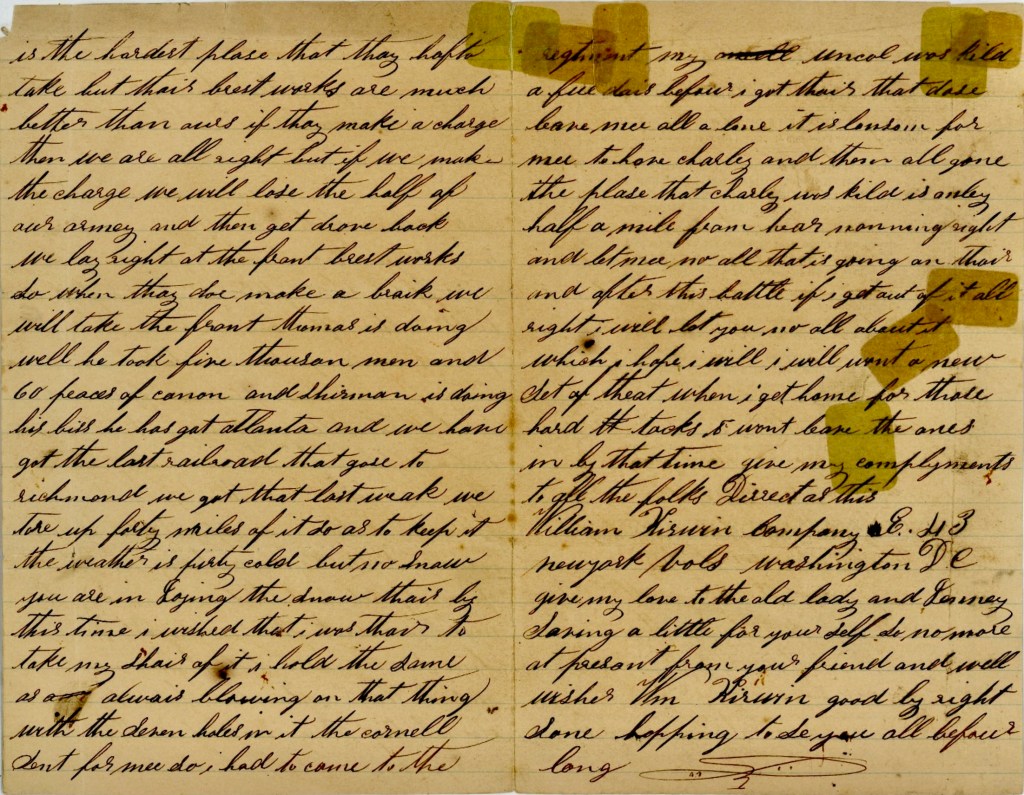 is the hardest plase that thay hafto
take but thair brest works are much
better than ours if thay make a charge
then we are all right but if we make
the charge we will lose the half of
our armey and then get drove back
we lay right at the front brest works
so when thay doe make a braik we
will take the front thomas is doing
well he took five thousan men and
60 peaces of canon and shirman is doing
his biss he has got atlanta and we have
got the last railroad that gose to
richmond we got that last weak we
tore up forty miles of it so as to keep it
the weather is purty cold but no snow
you are in Eojing the snow thair by
this time i wished that i was thair to
take my shair of it i hold the same
as alwais blowing on that thing
with the seven holes in it the cornell
sent for mee so i had to come to the
regtment my uncol was kild
a fue dais befour i got thair that dose
leave mee all a lone it is lonsom for
mee to have charley and them all gone
the plase that charley was kild is onley
half a mile from hear nonning right
and let mee no all that is going on thair
and after this battle if i get out of it all
right i will let you no all about it
which i hope i will i will want a new
set of theat when i get home for those
hard tacks wont leave the ones
in by that time give my complyments
to all the folks Dirrect as this
William Kirwin Company E. 43
newyork Vols washington DC
give my love to the old lady and Jenney
saving a little for your self so no more
at present from your friend and well
wisher Wm Kirwin good by right
sone hopping to se you all befour
long